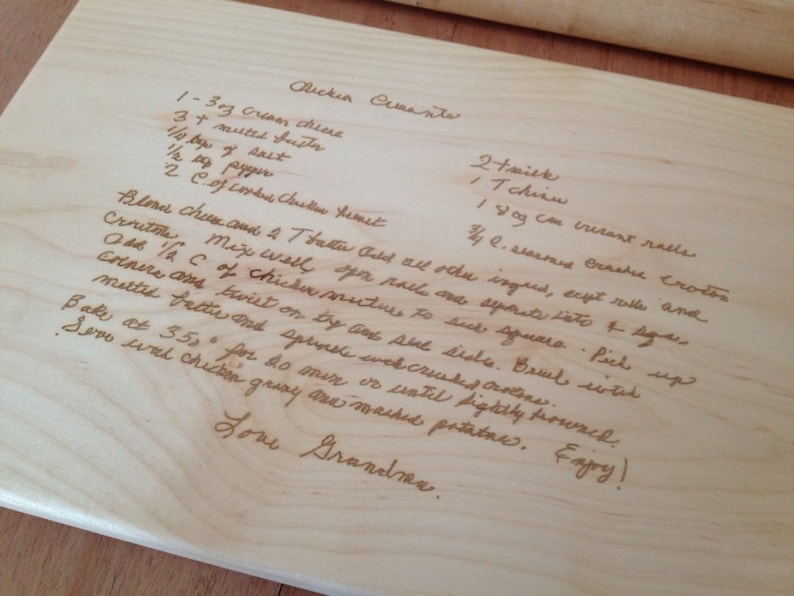 Chicken Cresants
1 - 3 oz cream cheese
3 T melted butter
1/8 tsp of salt
1/8 tsp pepper
2 C. of cooked chicken breast
2 T milk
1 T chives
1 8 oz can cresant rolls
3/4 C. seasoned crushed croton
Blend cheese and 2 T butter add all other ingred, except rolls and
croutons. Mix well, open rolls and separate into 4 squa.
add 1/2 C of chicken mixture to each square. Pick up
corners and twist on top and seal sides. Brush with
melted butter and sprinkle with crushed crotons.
Bake at 350° for 20 min or until lightly browned.
Serve with chicken gravy and mashed potatoes. Enjoy!
Love Grandma.